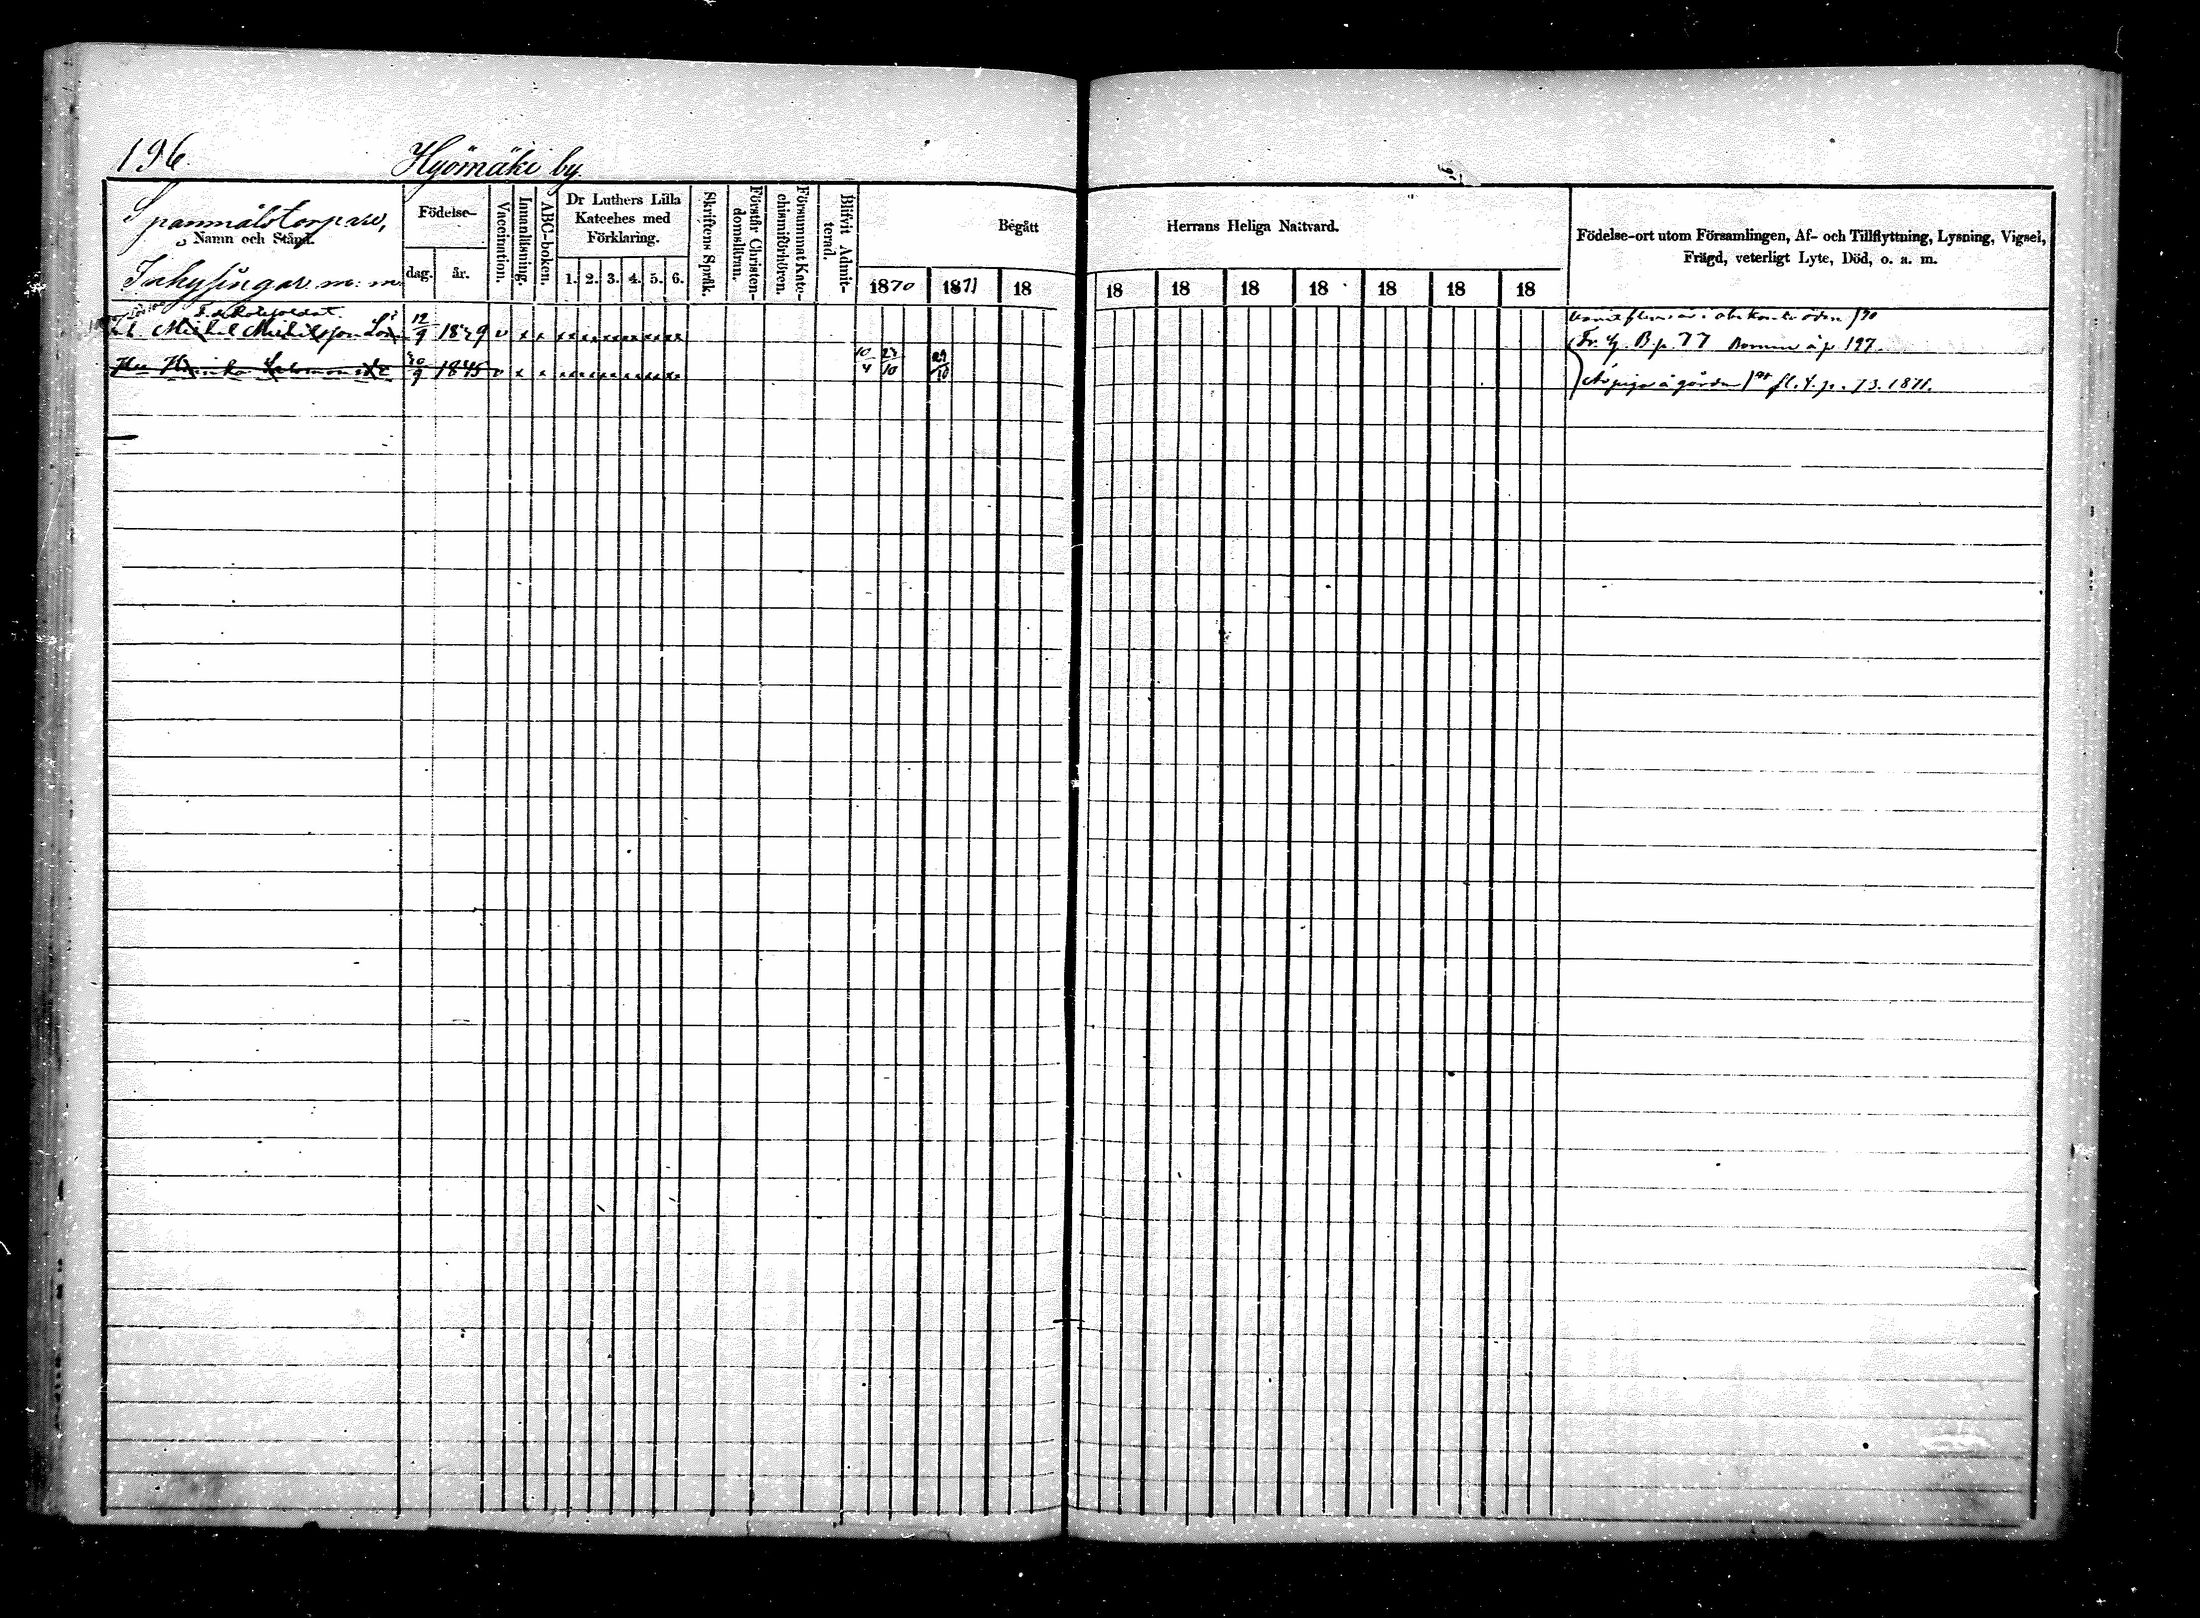 196.
Hyömäki by
Spanmålstorpare,
Namn och Stånd.
Inhysingar m: m
Födelse-
dag. år.
Vaccination.
Innanläsning.
ABC-boken.
Dr Luthers Lilla
Kateches med
Förklaring.
1. 2. 3. 4. 5. 6.
Skriftens Språk.
Förstår Christen-
domsläran.
Försummat Kate-
chismiförhören.
Blifvit Admit-
terad.
Begått Herrans Heliga Nattvard.
1870 1871 18 18 18 18 18 18 18 18
Födelse-ort utom Församlingen, Af- och Tillflyttning, Lysning, Vigsel,
Frägd, veterligt Lyte, Död, o. a. m.
Michel Michelsson 12/9 1829 v x x
Fr. G. B. p. 77 p. 197.
Henrika Salomonsdr 9 1845 v x x 10/4 10 29/10
å gården fl. t. p. 73. 1871.